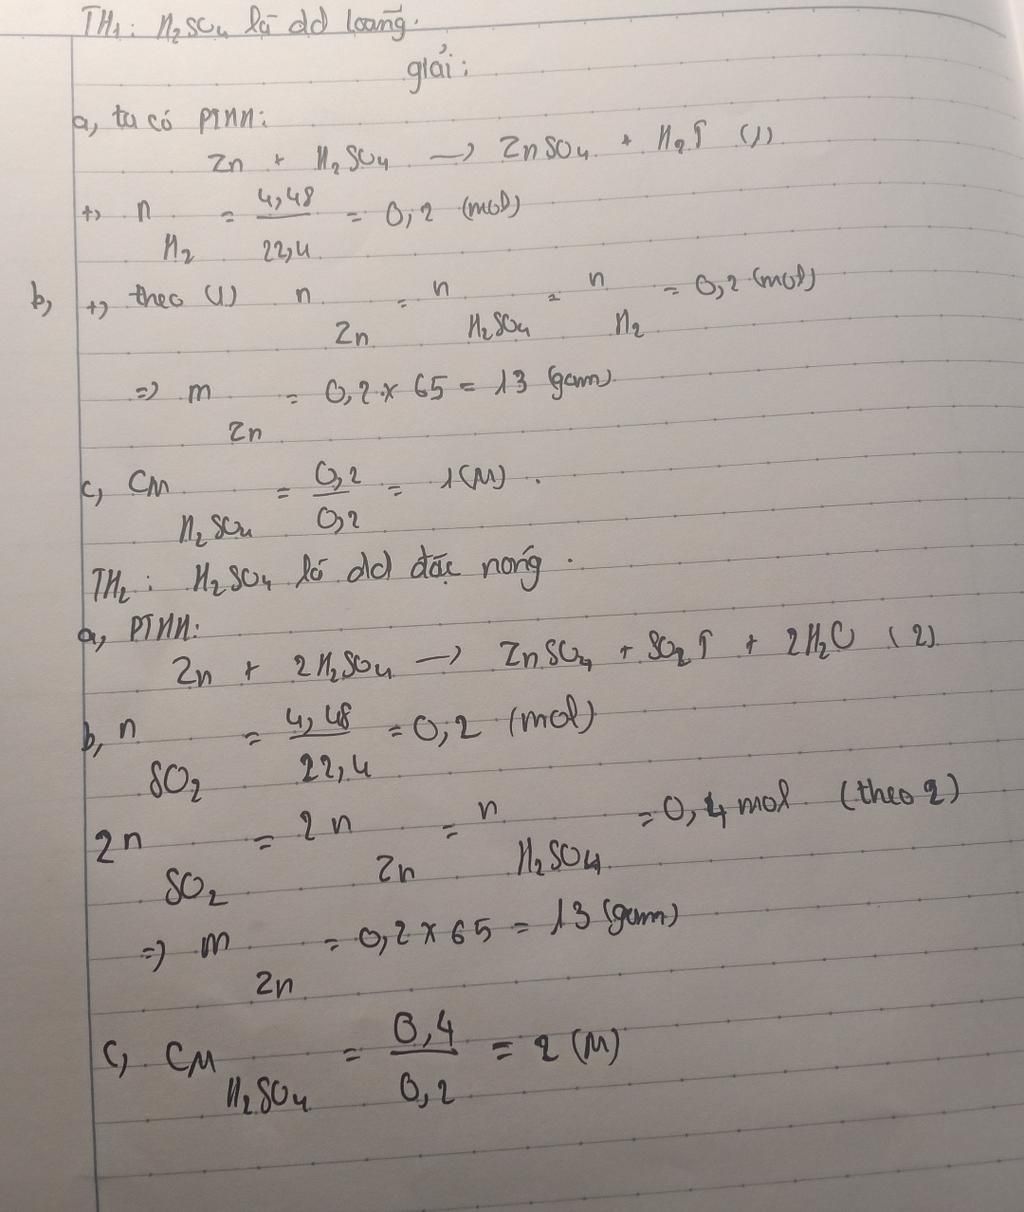 TH1: H2SO4 là dd loãng.
giải:
a, ta có PTHH:
Zn + H2SO4 → ZnSO4 + H2↑ (1)
+) n H2 = 4,48 / 22,4 = 0,2 (mol)
b, +) theo (1) n Zn = n H2SO4 = n H2 = 0,2 (mol)
=> m Zn = 0,2 x 65 = 13 (gam)
c, CM H2SO4 = 0,2 / 0,2 = 1 (M).
TH2: H2SO4 là dd đặc nóng.
a, PTHH:
Zn + 2H2SO4 → ZnSO4 + SO2↑ + 2H2O (2)
b, n SO2 = 4,48 / 22,4 = 0,2 (mol)
2n SO2 = 2n Zn = n H2SO4 = 0,4 mol (theo 2)
=> m Zn = 0,2 x 65 = 13 (gam)
c, CM H2SO4 = 0,4 / 0,2 = 2 (M)